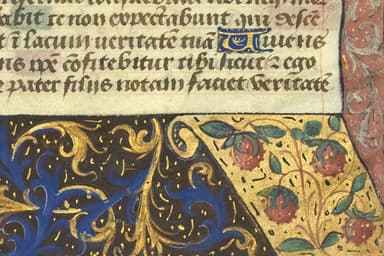 abit te non expectabunt qui descē
t ī lacum veritatē tuā Viuens
ns ip̄e cōfitebitur tibi sicut ⁊ ego
e pater filijs notam faciet veritatē